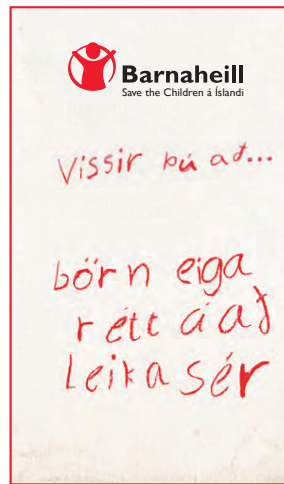 Barnaheill
Save the Children á Íslandi
Vissir þú að...
börn eiga
rétt á að
leika sér